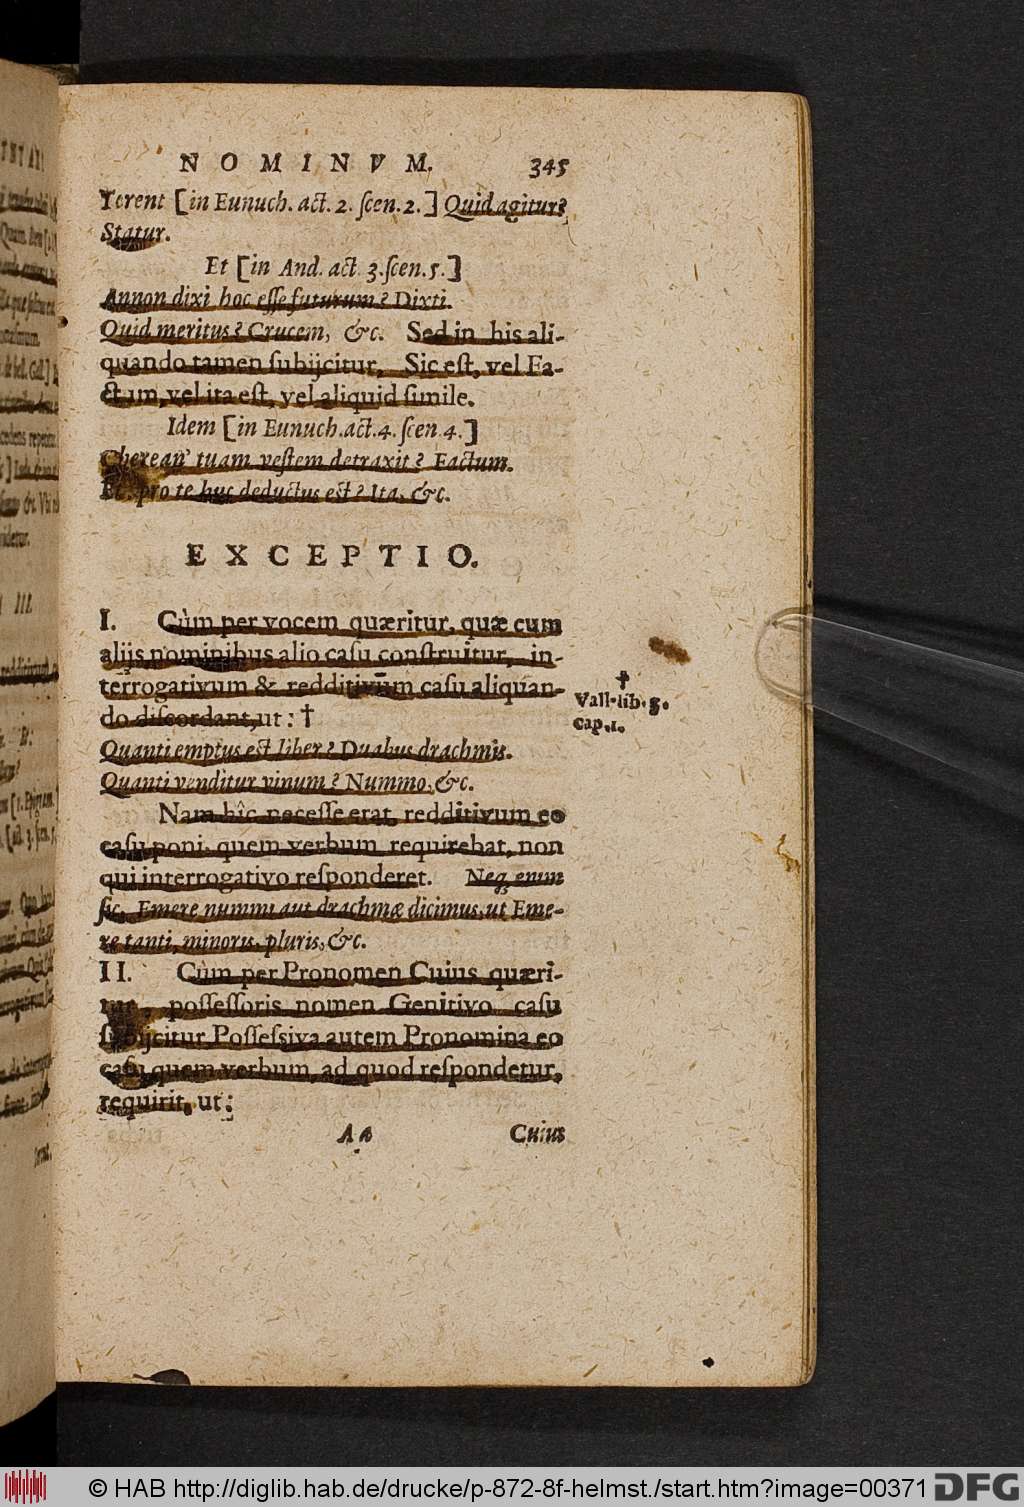 NOMINVM. 345
Terent [in Eunuch. act. 2. ſcen. 2.] Quid agitur?
Statur.
Et [in And. act. 3. ſcen. 5.]
Annon dixi hoc eſſe futurum? Dixti.
Quid meritus? Crucem, &c. Sed in his ali-
quando tamen ſubijcitur, Sic eſt, vel Fa-
ctum, vel ita eſt, vel aliquid ſimile.
Idem [in Eunuch. act. 4. ſcen. 4.]
Cherean' tuam veſtem detraxit? Factum.
Et pro te huc deductus est? Ita, &c.
EXCEPTIO.
I. Cùm per vocem quæritur, quæ cum
alijs nominibus alio caſu conſtruitur, in-
terrogativum & redditivum caſu aliquan-
do diſcordant, ut: †
Quanti emptus est liber? Duabus drachmis.
Quanti venditur vinum? Nummo, &c.
Nam hîc neceſſe erat, redditivum eo
caſu poni, quem verbum requirebat, non
qui interrogativo reſponderet. Neq; enim
ſic, Emere nummi aut drachmæ dicimus, ut Eme-
re tanti, minoris, pluris, &c.
II. Cùm per Pronomen Cuius quæri-
tur, poſſeſſoris nomen Genitivo caſu
ſubijcitur, Poſſeſsiva autem Pronomina eo
caſu, quem verbum, ad quod reſpondetur,
requirit, ut:
Aa Cuius
†
Vall. lib. 3.
cap. 1.
© HAB http://diglib.hab.de/drucke/p-872-8f-helmst./start.htm?image=00371 DFG